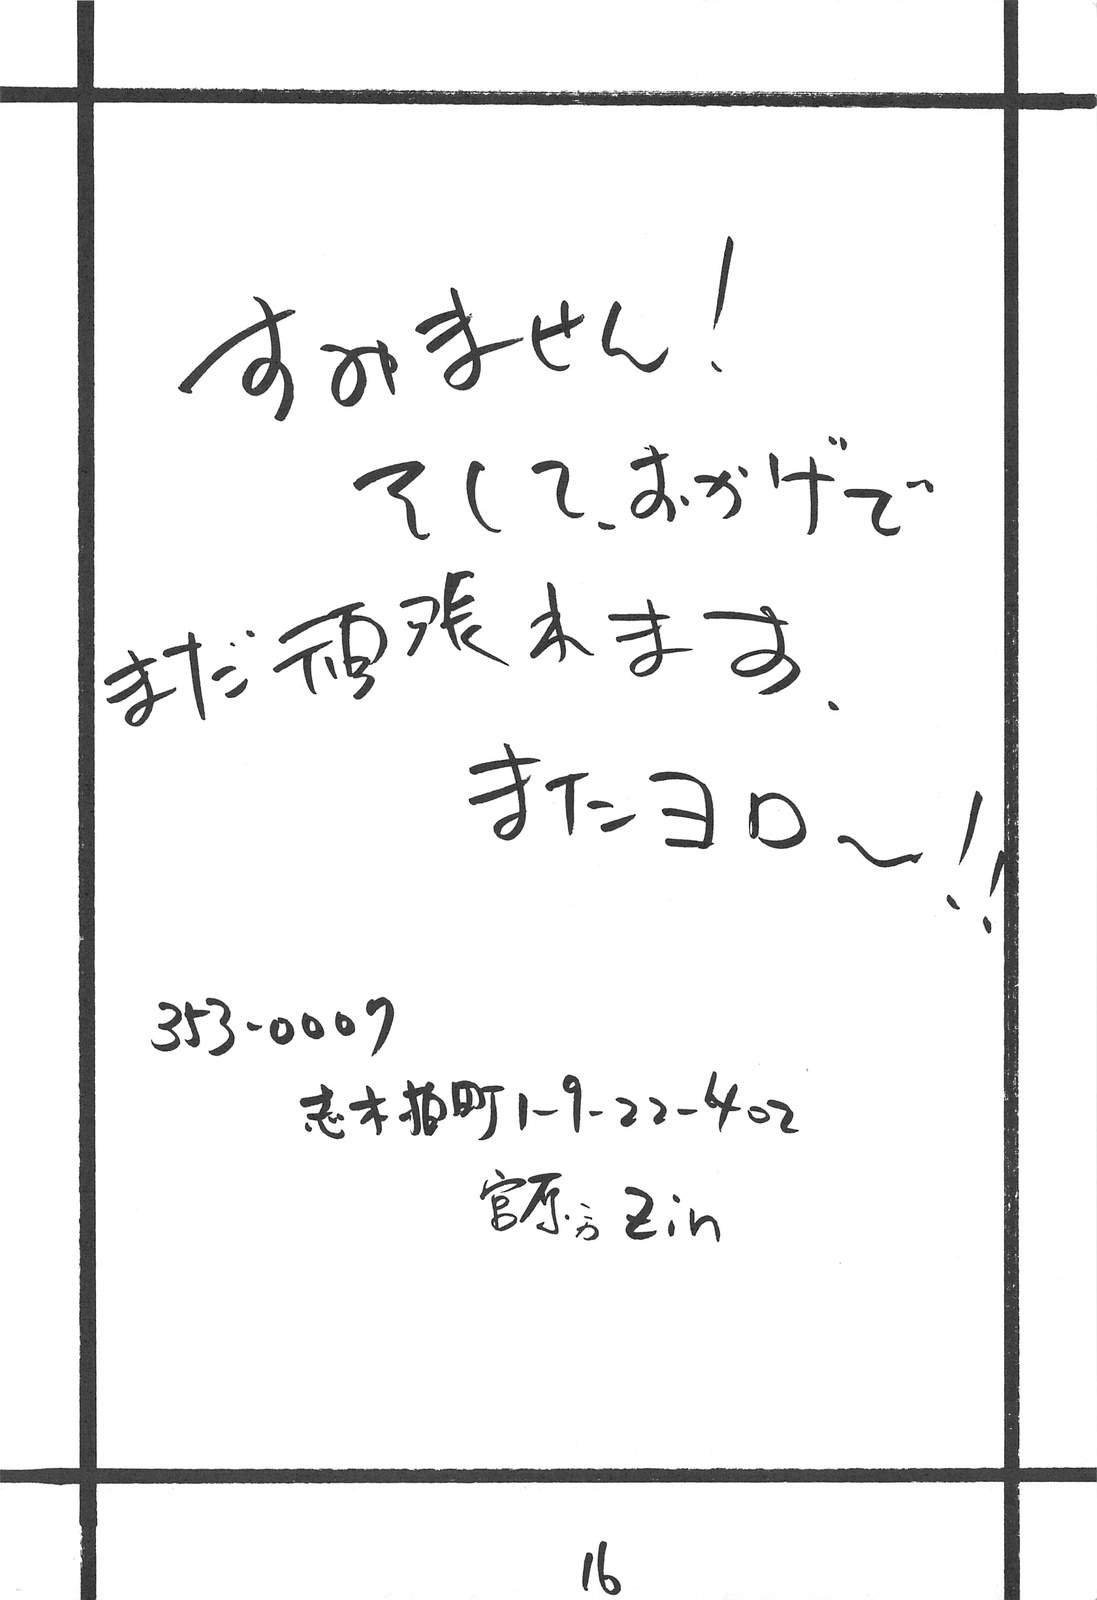 すみません！
そして、おかげで
まだ頑張れます、
またヨロ〜！！
353-0007
志木柏町1-9-22-402
宮原方 Zin
16